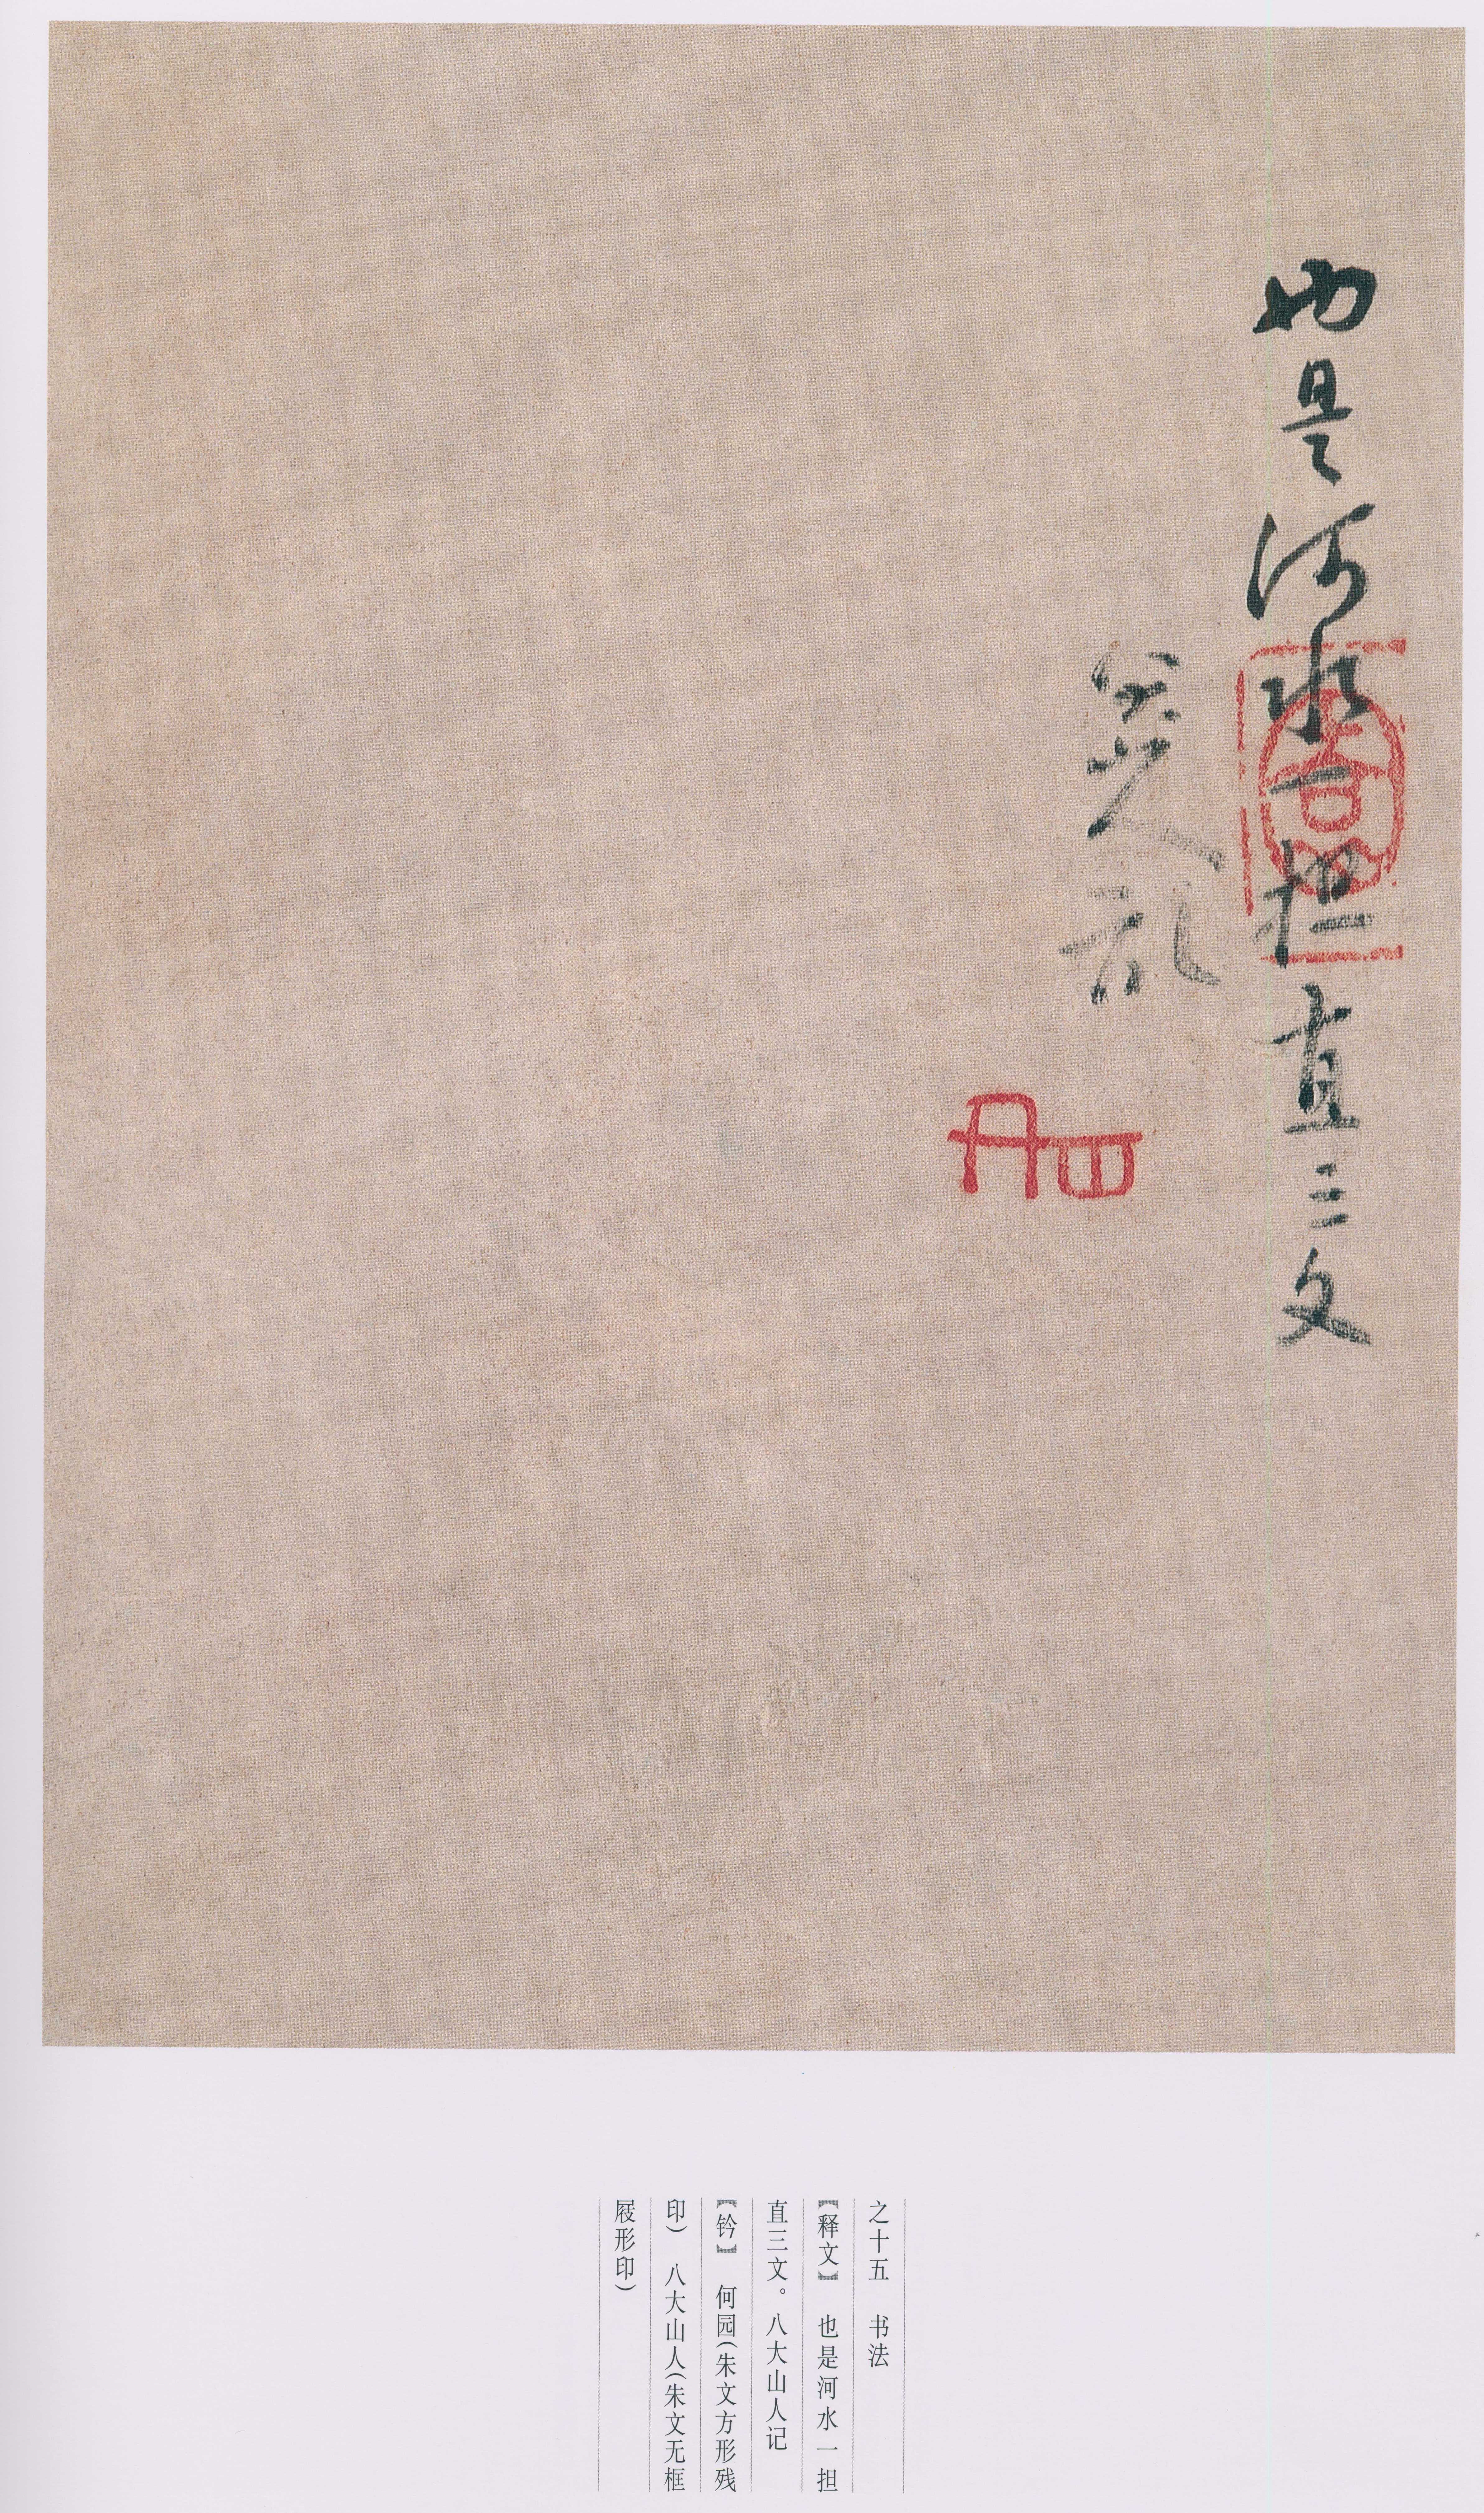 也是河水一担直三文
八大山人記
之十五　书法
【释文】　也是河水一担
直三文。八大山人记
【钤】　何园(朱文方形残
印)　八大山人(朱文无框
屐形印)